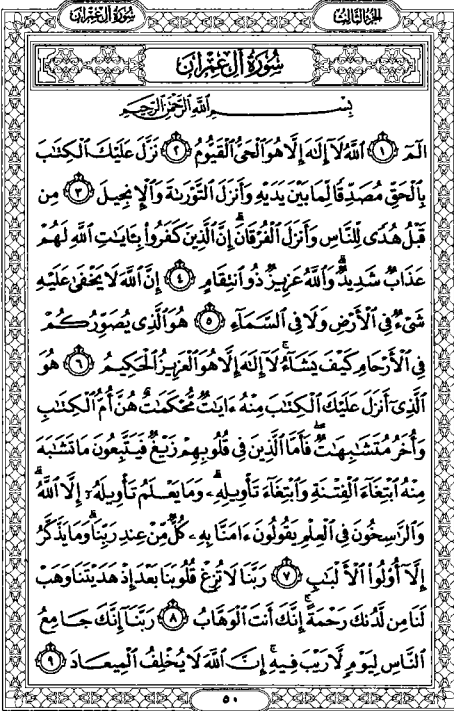 سُورَةُ آلِ عِمْرَانَ
الجُزْءُ الثَّالِثُ
سُورَةُ آلِ عِمْرَانَ
بِسْمِ ٱللَّهِ ٱلرَّحْمَٰنِ ٱلرَّحِيمِ
الٓمٓ ١ ٱللَّهُ لَآ إِلَٰهَ إِلَّا هُوَ ٱلْحَىُّ ٱلْقَيُّومُ ٢ نَزَّلَ عَلَيْكَ ٱلْكِتَٰبَ
بِٱلْحَقِّ مُصَدِّقًا لِّمَا بَيْنَ يَدَيْهِ وَأَنزَلَ ٱلتَّوْرَىٰةَ وَٱلْإِنجِيلَ ٣ مِن
قَبْلُ هُدًى لِّلنَّاسِ وَأَنزَلَ ٱلْفُرْقَانَ ۗ إِنَّ ٱلَّذِينَ كَفَرُوا۟ بِـَٔايَٰتِ ٱللَّهِ لَهُمْ
عَذَابٌ شَدِيدٌ ۗ وَٱللَّهُ عَزِيزٌ ذُو ٱنتِقَامٍ ٤ إِنَّ ٱللَّهَ لَا يَخْفَىٰ عَلَيْهِ
شَىْءٌ فِى ٱلْأَرْضِ وَلَا فِى ٱلسَّمَآءِ ٥ هُوَ ٱلَّذِى يُصَوِّرُكُمْ
فِى ٱلْأَرْحَامِ كَيْفَ يَشَآءُ ۚ لَآ إِلَٰهَ إِلَّا هُوَ ٱلْعَزِيزُ ٱلْحَكِيمُ ٦ هُوَ
ٱلَّذِىٓ أَنزَلَ عَلَيْكَ ٱلْكِتَٰبَ مِنْهُ ءَايَٰتٌ مُّحْكَمَٰتٌ هُنَّ أُمُّ ٱلْكِتَٰبِ
وَأُخَرُ مُتَشَٰبِهَٰتٌ ۖ فَأَمَّا ٱلَّذِينَ فِى قُلُوبِهِمْ زَيْغٌ فَيَتَّبِعُونَ مَا تَشَٰبَهَ
مِنْهُ ٱبْتِغَآءَ ٱلْفِتْنَةِ وَٱبْتِغَآءَ تَأْوِيلِهِۦ ۗ وَمَا يَعْلَمُ تَأْوِيلَهُۥٓ إِلَّا ٱللَّهُ ۗ
وَٱلرَّٰسِخُونَ فِى ٱلْعِلْمِ يَقُولُونَ ءَامَنَّا بِهِۦ كُلٌّ مِّنْ عِندِ رَبِّنَا ۗ وَمَا يَذَّكَّرُ
إِلَّآ أُو۟لُوا۟ ٱلْأَلْبَٰبِ ٧ رَبَّنَا لَا تُزِغْ قُلُوبَنَا بَعْدَ إِذْ هَدَيْتَنَا وَهَبْ
لَنَا مِن لَّدُنكَ رَحْمَةً ۚ إِنَّكَ أَنتَ ٱلْوَهَّابُ ٨ رَبَّنَآ إِنَّكَ جَامِعُ
ٱلنَّاسِ لِيَوْمٍ لَّا رَيْبَ فِيهِ ۚ إِنَّ ٱللَّهَ لَا يُخْلِفُ ٱلْمِيعَادَ ٩
٥٠